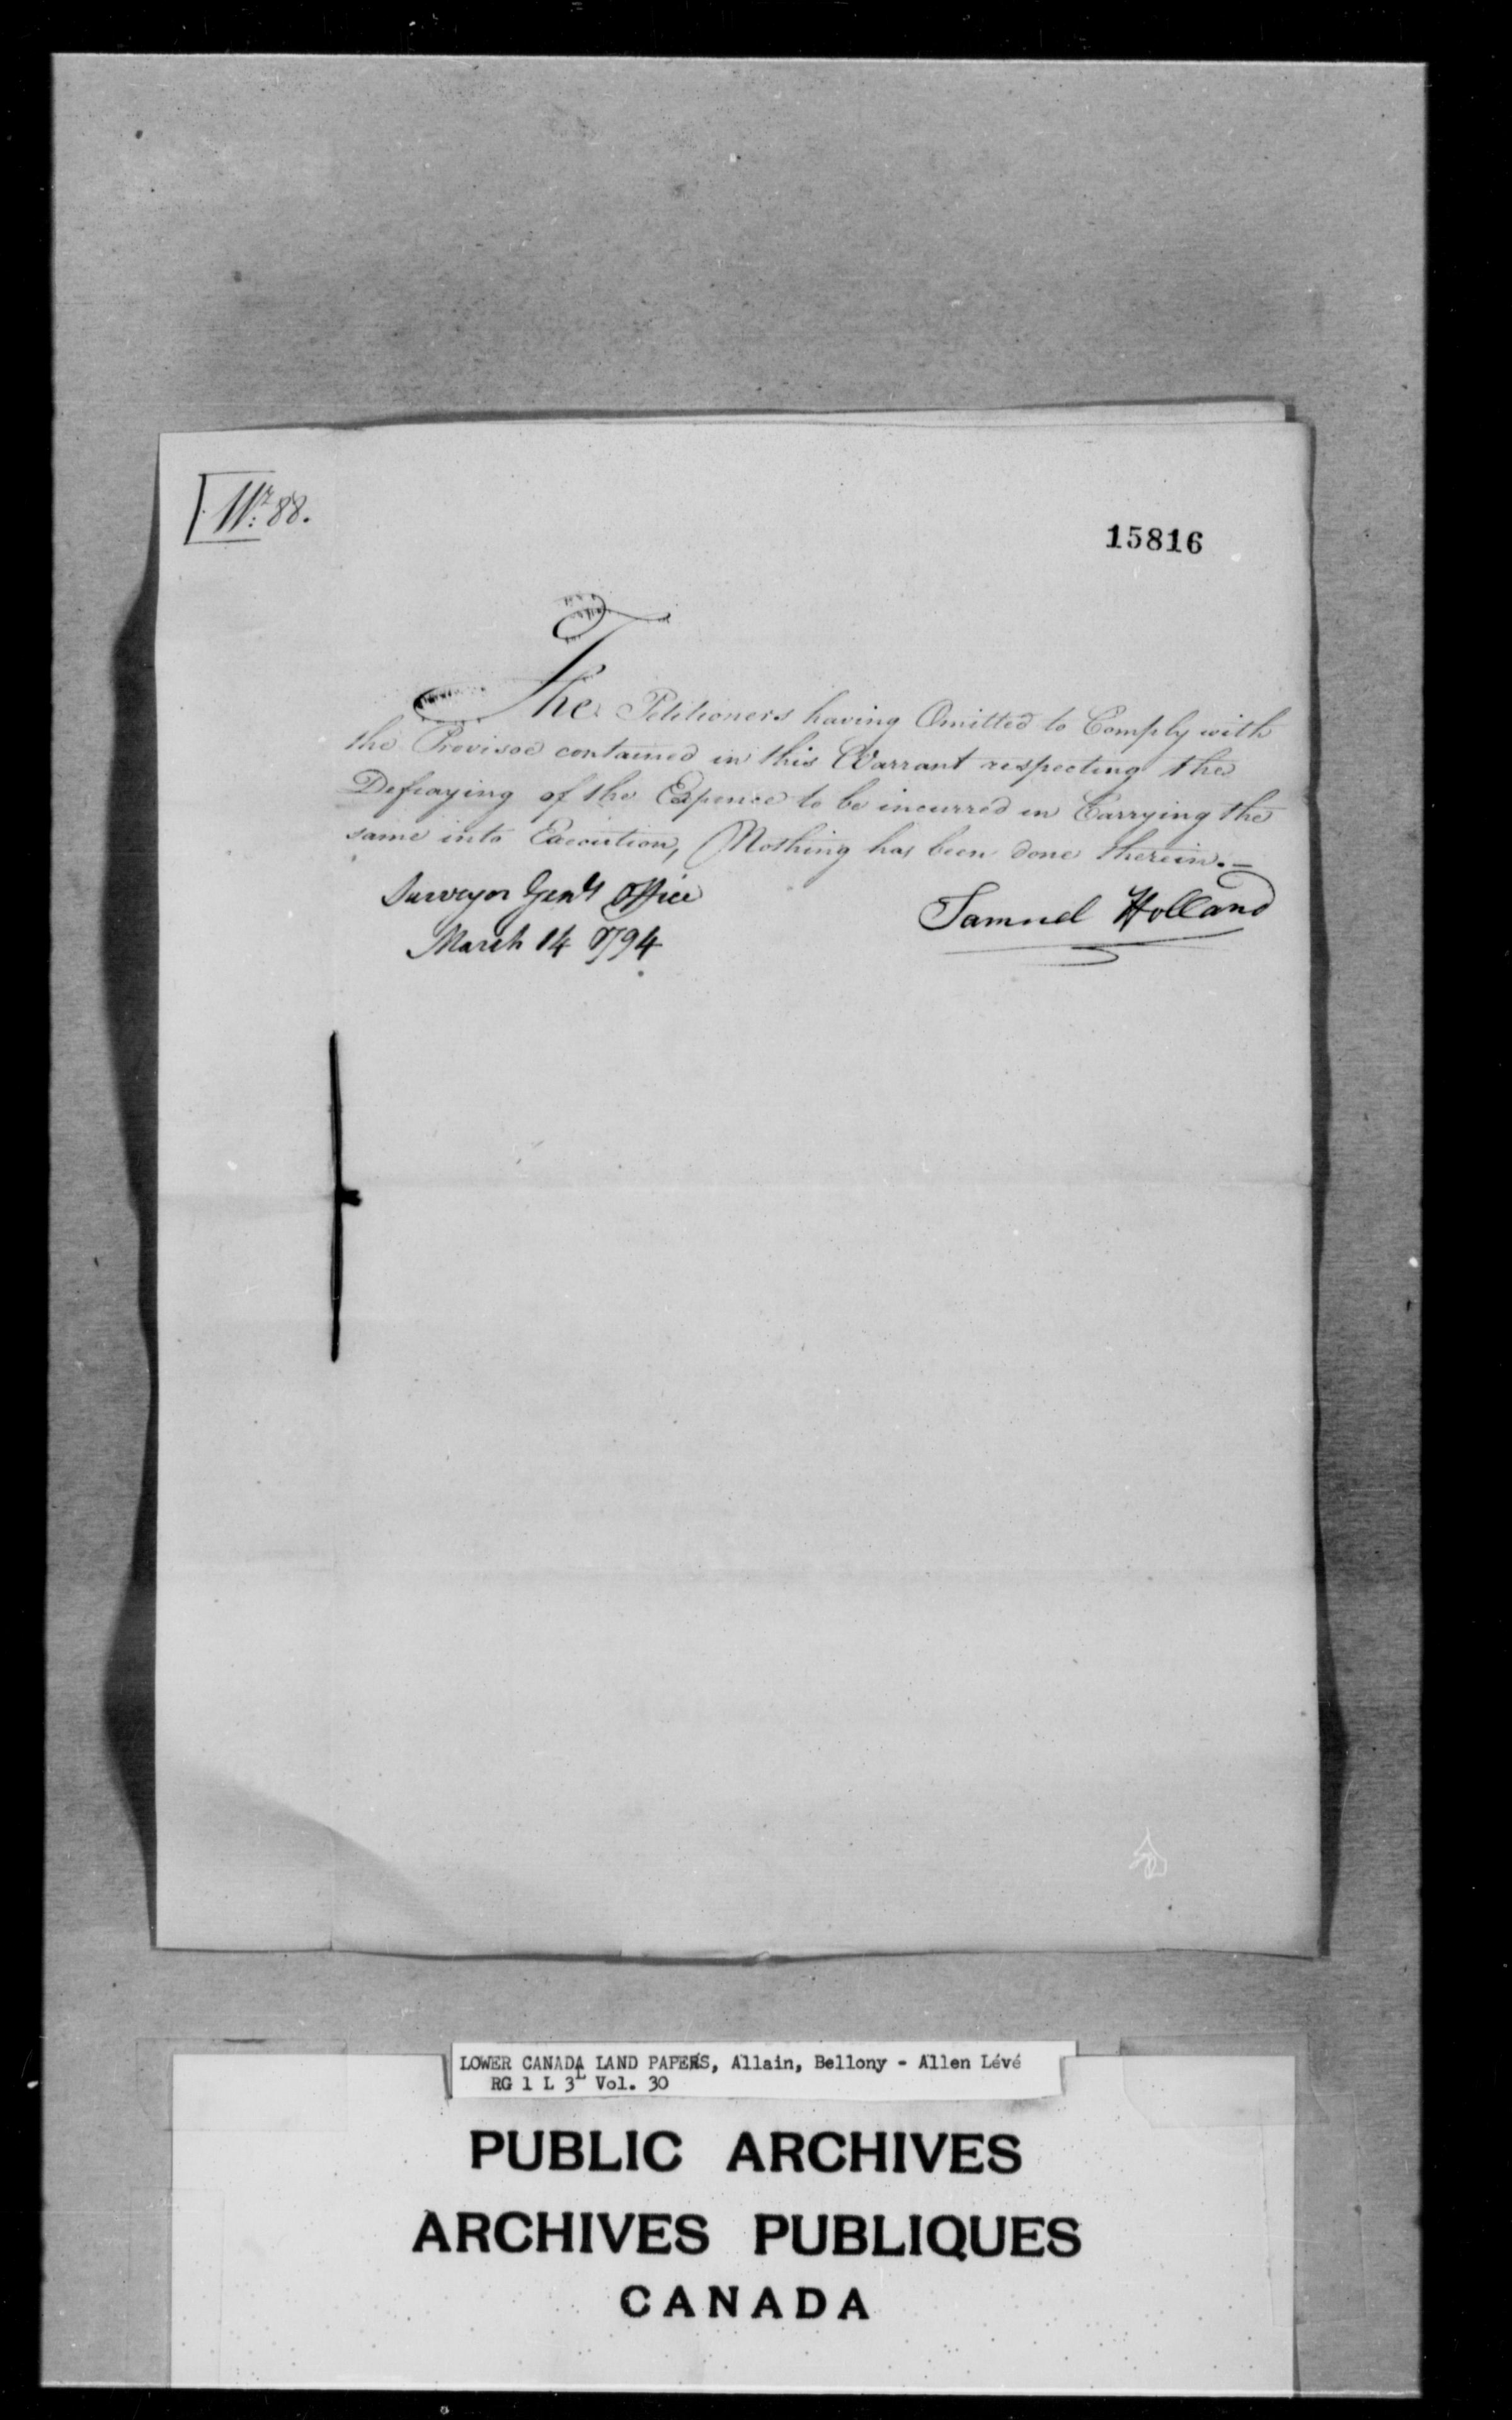 Nr: 88.
15816
The Petitioners having Omitted to Comply with
the Provisoe contained in this Warrant respecting the
Defraying of the Expence to be incurred in Carrying the
same into Execution, Nothing has been done therein.—
Surveyor Genls Office
March 14 1794
Samuel Holland
LOWER CANADA LAND PAPERS, Allain, Bellony - Allen Lévé
RG 1 L 3L Vol. 30
PUBLIC ARCHIVES
ARCHIVES PUBLIQUES
CANADA